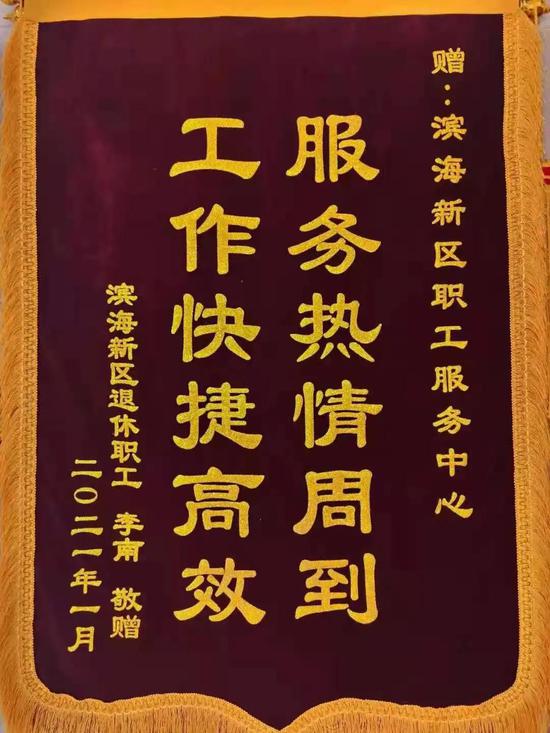 赠：滨海新区职工服务中心
服务热情周到
工作快捷高效
滨海新区退休职工 李南 敬赠
二〇二一年一月